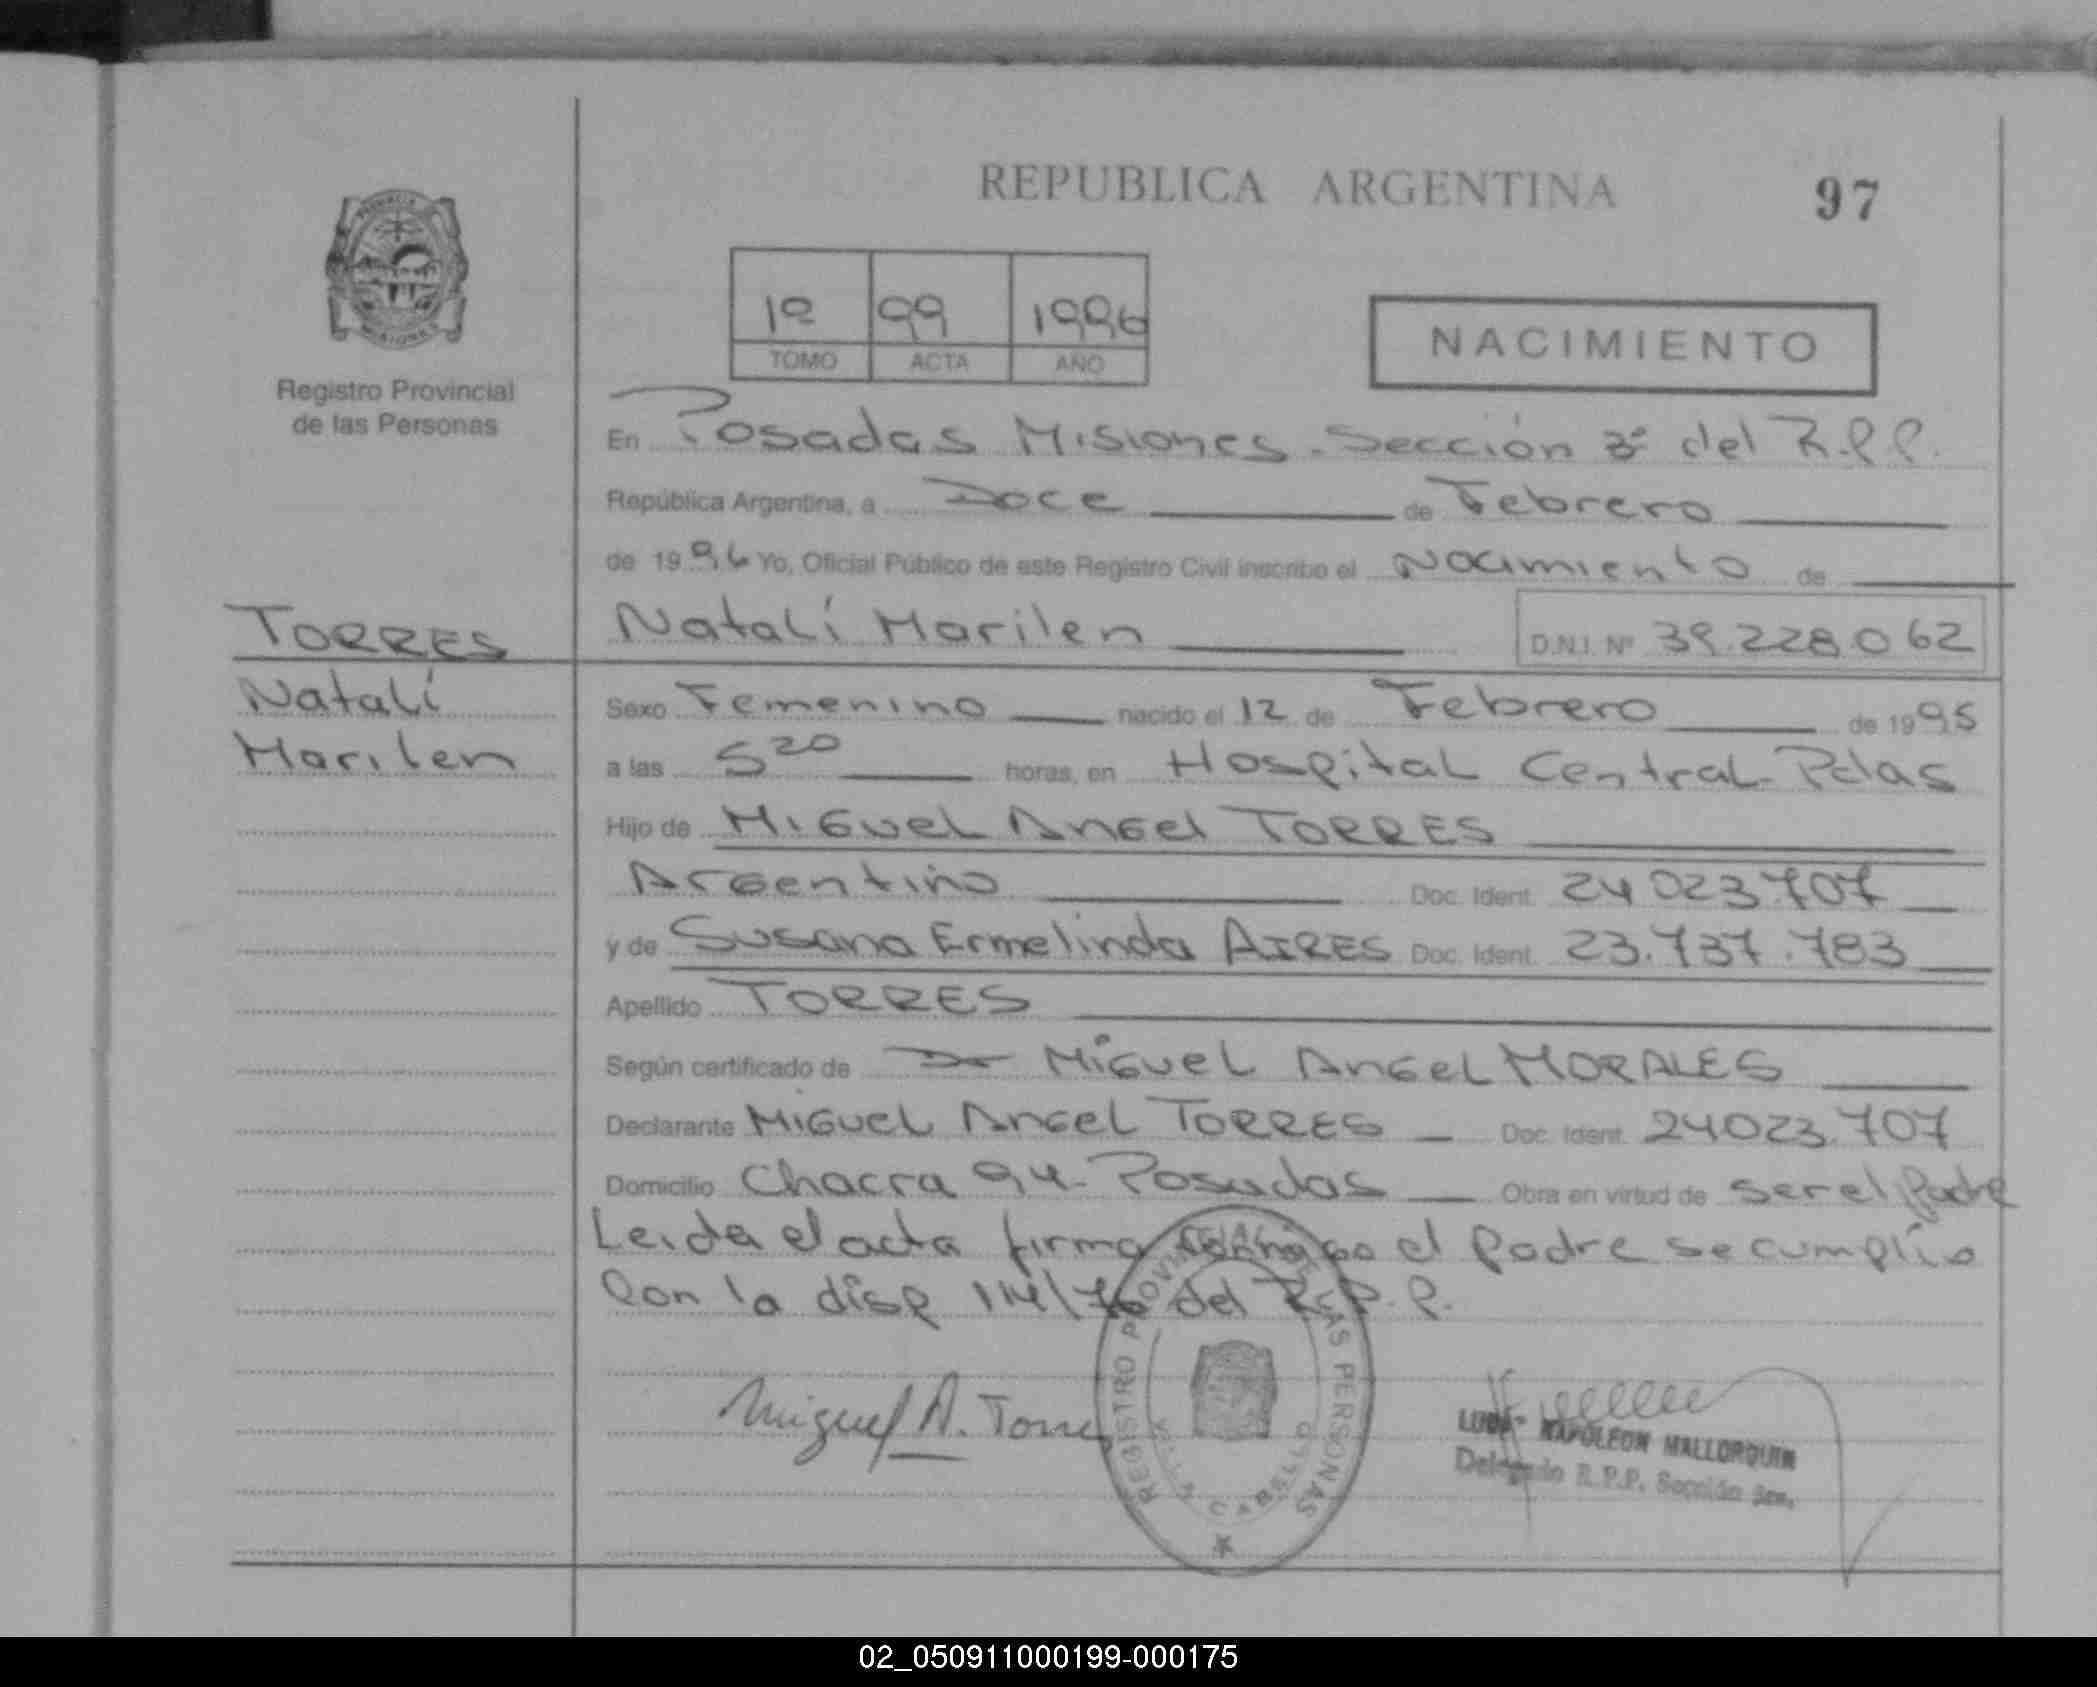 REPUBLICA ARGENTINA
97
PROVINCIA
MISIONES
Registro Provincial
de las Personas
1º 99 1996
TOMO ACTA AÑO
NACIMIENTO
En Posadas Misiones - Sección 3ª del R.P.P.
República Argentina, a Doce de Febrero
de 1996 Yo, Oficial Público de este Registro Civil inscribo el Nacimiento de
TORRES
Natalí Marilen D.N.I. Nº 39.228.062
Natalí
Marilen
Sexo Femenino nacido el 12 de Febrero de 1995
a las 5 20 horas, en Hospital Central - Pdas
Hijo de Miguel Angel TORRES
Argentino Doc. Ident. 24 023.707
y de Susana Ermelinda AIRES Doc. Ident. 23.737.783
Apellido TORRES
Según certificado de Dr Miguel Angel MORALES
Declarante Miguel Angel TORRES Doc. Ident. 24023.707
Domicilio Chacra 94 - Posadas Obra en virtud de ser el Padre
Leida el acta firma conmigo el Padre se cumplio
Con la disp 114/76 del R.P.P.
REGISTRO PROVINCIAL DE LAS PERSONAS
VILLA CABELLO
Miguel A. Torres
NAPOLEON MALLORQUIN
Delegado R.P.P. Sección 3ra.
02_050911000199-000175